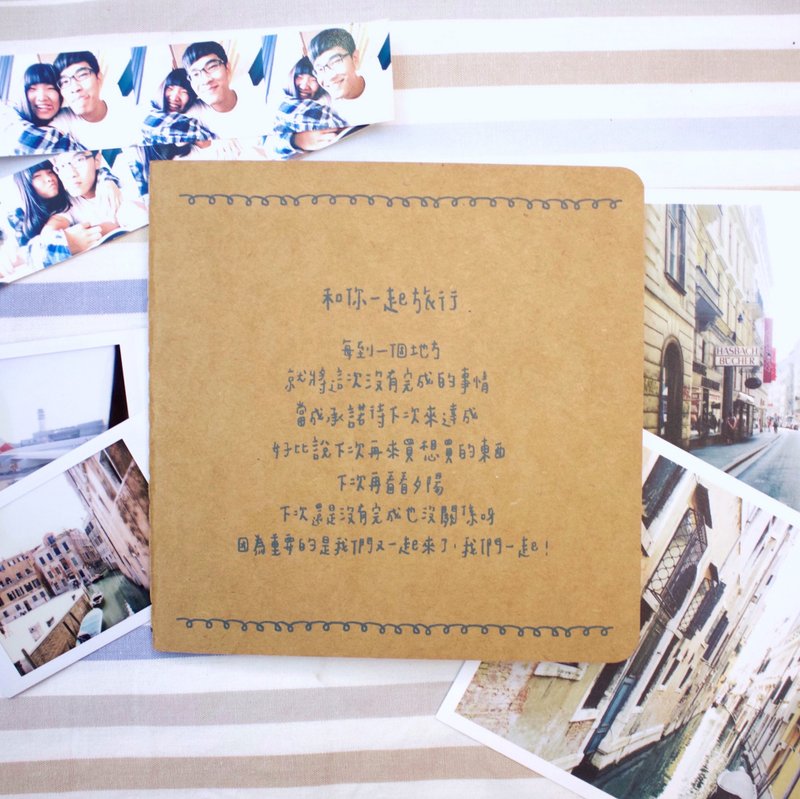 和你一起旅行
每到一個地方
就將這次沒有完成的事情
當成承諾待下次來達成
好比說下次再來買想買的東西
下次再看看夕陽
下次還是沒有完成也沒關係呀
因為重要的是我們又一起來了,我們一起!
HASBACH
BÜCHER